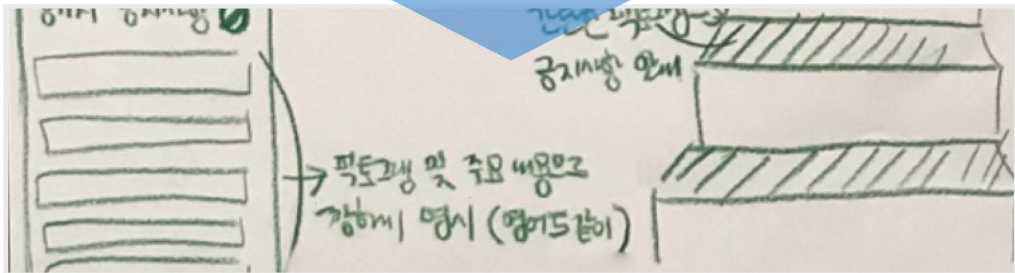 공지사항
공지사항 안내
픽토그램 및 주요 내용으로
강하게 명시 (영어도같이)